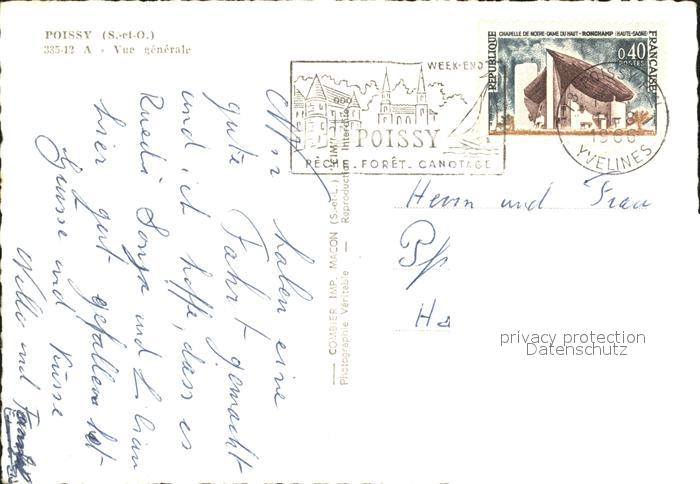 POISSY (S.-et-O.)
335-12 A - Vue générale
WEEK-END
POISSY
PÊCHE - FORÊT - CANOTAGE
RÉPUBLIQUE FRANÇAISE
CHAPELLE DE NOTRE-DAME DU HAUT - RONCHAMP (HAUTE-SAÔNE)
0,40
POSTES
POISSY
YVELINES
Wir haben eine
gute Fahrt gemacht
und ich hoffe, dass es
Ruedi Sonja und Lilian
hier gut gefallen hat
Grüsse und Küsse
Willi und
COMBIER IMP. MACON (S.-et-L.)
Photographie Véritable - Reproduction Interdite
Herrn und Frau
Pf
Ha
privacy protection
Datenschutz